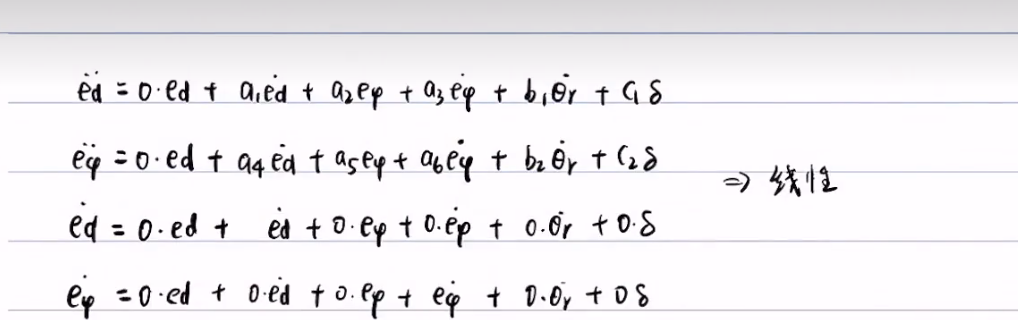 ë_d = 0·e_d + a₁ė_d + a₂e_φ + a₃ė_φ + b₁θ̇_r + c₁δ
ë_φ = 0·e_d + a₄ė_d + a₅e_φ + a₆ė_φ + b₂θ̇_r + c₂δ
⇒ 线性
ė_d = 0·e_d + ė_d + 0·e_φ + 0·ė_φ + 0·θ̇_r + 0·δ
ė_φ = 0·e_d + 0·ė_d + 0·e_φ + ė_φ + 0·θ̇_r + 0δ